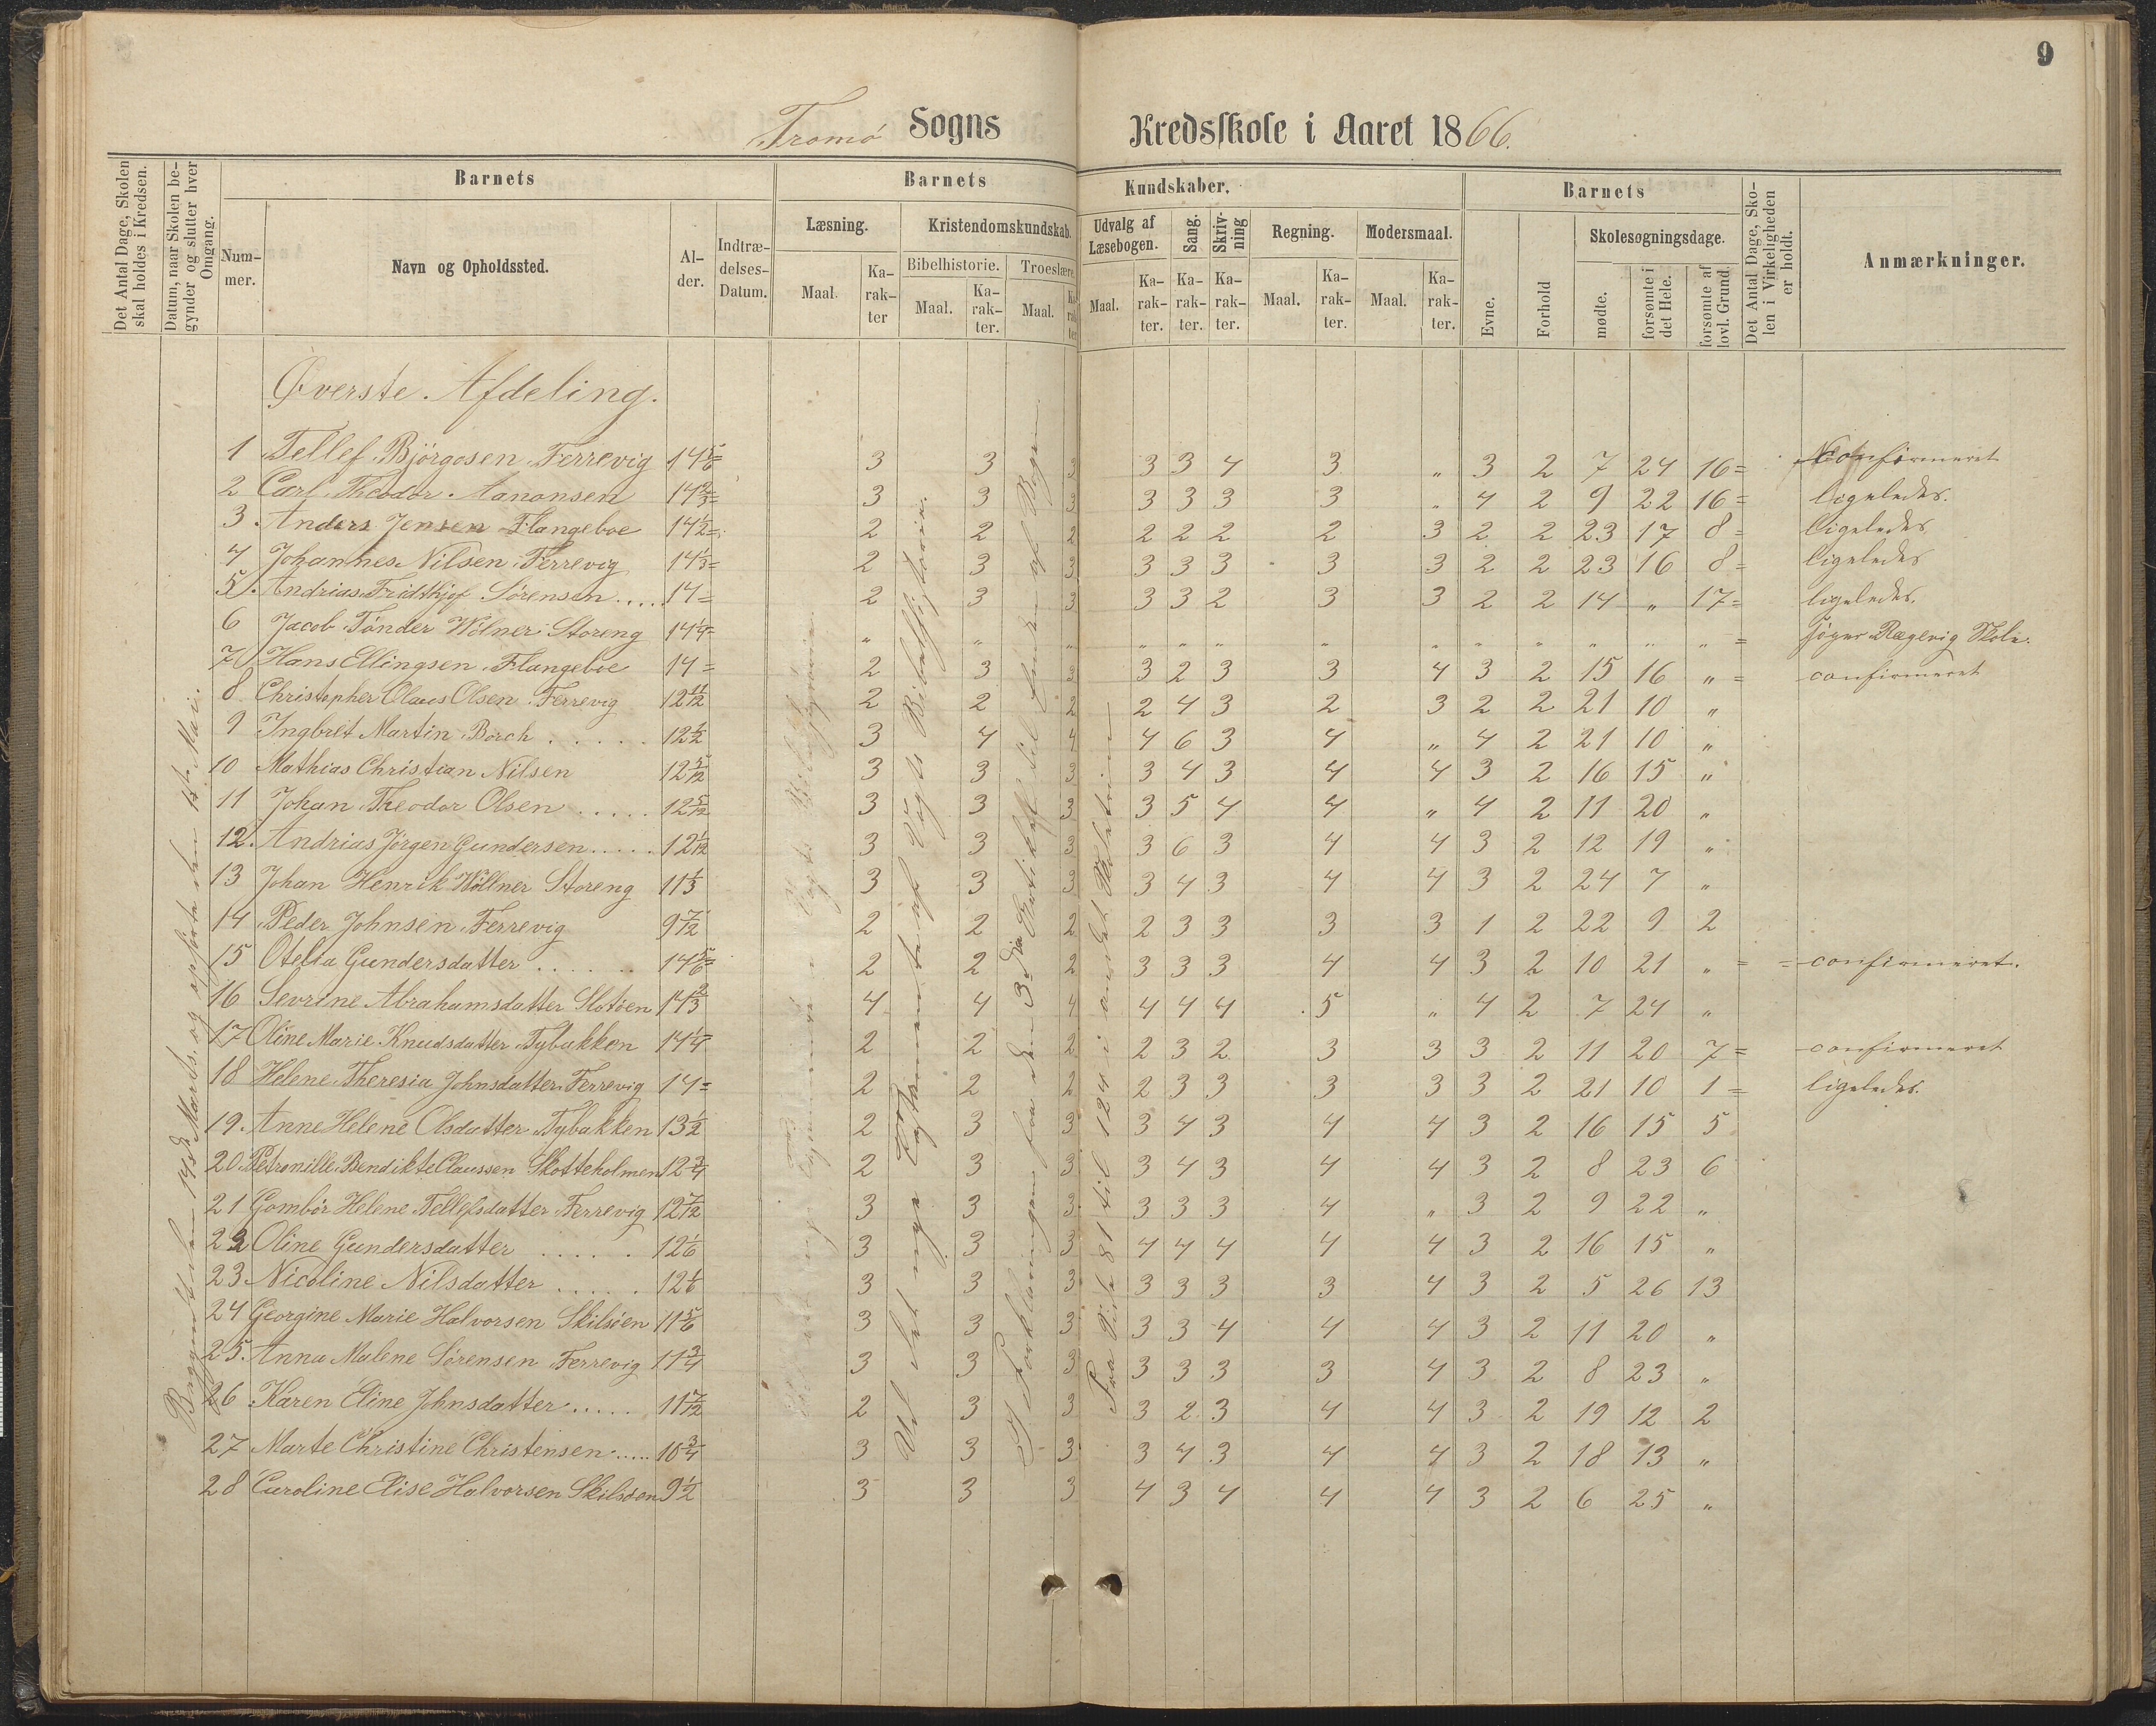 9
Tromø Sogns Kredsskole i Aaret 1866.
Det Antal Dage, Skolen skal holdes i Kredsen.
Datum, naar Skolen begynder og slutter hver Omgang.
Barnets
Nummer.
Navn og Opholdssted.
Alder.
Indtrædelses-Datum.
Barnets Kundskaber.
Læsning.
Maal.
Karakter
Kristendomskundskab.
Bibelhistorie.
Maal.
Karakter.
Troeslære.
Maal.
Karakter
Udvalg af Læsebogen.
Maal.
Karakter.
Sang.
Karakter.
Skrivning
Karakter.
Regning.
Maal.
Karakter.
Modersmaal.
Maal.
Karakter.
Barnets
Evne.
Forhold
Skolesøgningsdage.
mødte.
forsømte i det Hele.
forsømte af lovl. Grund.
Det Antal Dage, Skolen i Virkeligheden er holdt.
Anmærkninger.
Øverste Afdeling.
1 Tellef Bjørgosen Ferrevig 14 5/6 = 3 3 3 3 3 4 3 „ 3 2 7 24 16 = Confirmeret
2 Carl Theodor Aanonsen 14 2/3 = 3 3 3 3 3 3 3 „ 4 2 9 22 16 = ligeledes.
3. Anders Jensen Flangeboe 14 1/2 = 2 2 2 2 2 2 2 3 2 2 23 17 8 = ligeledes
4 Johannes Nilsen Ferrevig 14 1/3 = 2 3 3 3 3 3 3 3 2 2 23 16 8 = ligeledes
5. Andrias Fridthjof Sørensen 14 = 2 3 3 3 3 2 3 3 2 2 14 „ 17 = ligeledes.
6 Jacob Tønder Wölner Storeng 14 1/4 = „ „ „ „ „ „ „ „ „ „ „ „ „ = søger Rægevig Skole.
7 Hans Ellingsen Flangeboe 14 = 2 3 3 3 2 3 3 4 3 2 15 16 „ = confirmeret
8 Christopher Olaus Olsen Ferrevig 12 11/12 2 2 2 2 4 3 2 3 2 2 21 10 „
9 Ingbret Martin Borch 12 1/2 3 4 4 4 6 3 4 „ 4 2 21 10 „
10 Mathias Christian Nilsen 12 5/12 3 3 3 3 4 3 4 4 3 2 16 15 „
11 Johan Theodor Olsen 12 5/12 3 3 3 3 5 4 4 „ 4 2 11 20 „
12. Andrias Jørgen Gundersen 12 1/12 3 3 3 3 6 3 4 4 3 2 12 19 „
13 Johan Henrik Wöllner Storeng 11 1/3 3 3 3 3 4 3 4 4 3 2 24 7 „
14 Peder Johnsen Ferrevig 9 7/12 2 2 2 2 3 3 3 3 1 2 22 9 2
15 Otelia Gundersdatter 14 5/6 = 2 2 2 3 3 3 4 4 3 2 10 21 „ = confirmeret.
16 Sevrine Abrahamsdatter Slotøen 14 2/3 4 4 4 4 4 4 5 „ 4 2 7 24 „
17 Oline Marie Knudsdatter Tybakken 14 1/4 = 2 2 2 2 3 2 3 3 3 2 11 20 7 = confirmeret
18 Helene Theresia Johnsdatter Ferrevig 14 = 2 2 2 2 3 3 3 3 3 2 21 10 1 = ligeledes.
19. Anne Helene Olsdatter Tybakken 13 1/2 2 3 3 3 4 3 4 4 3 2 16 15 5
20. Petronille Bendikte Claussen Skotteholmen 12 3/4 2 3 3 3 4 3 4 4 3 2 8 23 6
21 Gombør Helene Tellefsdatter Ferrevig 12 7/12 3 3 3 3 3 3 4 „ 3 2 9 22 „
22 Oline Gundersdatter 12 1/6 3 3 3 4 4 4 4 4 3 2 16 15 „
23. Nicoline Nilsdatter 12 1/6 3 3 3 3 3 3 3 4 3 2 5 26 13
24 Georgine Marie Halvorsen Skilsøen 11 5/6 3 3 3 3 3 4 4 4 3 2 11 20 „
25. Anna Malene Sørensen Ferrevig 11 3/4 3 3 3 3 3 3 3 4 3 2 8 23 „
26 Karen Eline Johnsdatter 11 7/12 2 3 3 3 2 3 4 4 3 2 19 12 2
27 Marte Christine Christensen 10 3/4 3 3 3 3 4 3 4 4 3 2 18 13 „
28 Caroline Elise Halvorsen Skilsøen 9 1/2 3 3 3 4 3 4 4 4 3 2 6 25 „
Begyndt den 14de Marts og ophørte den 15de Mai.
Ud det nye Testamente af Vogts Bibelhistorie.
I Forklaringen fra den 3die Artikel til Enden af Bogen.
Fra Side 81 til 124 i andet Skoletrin